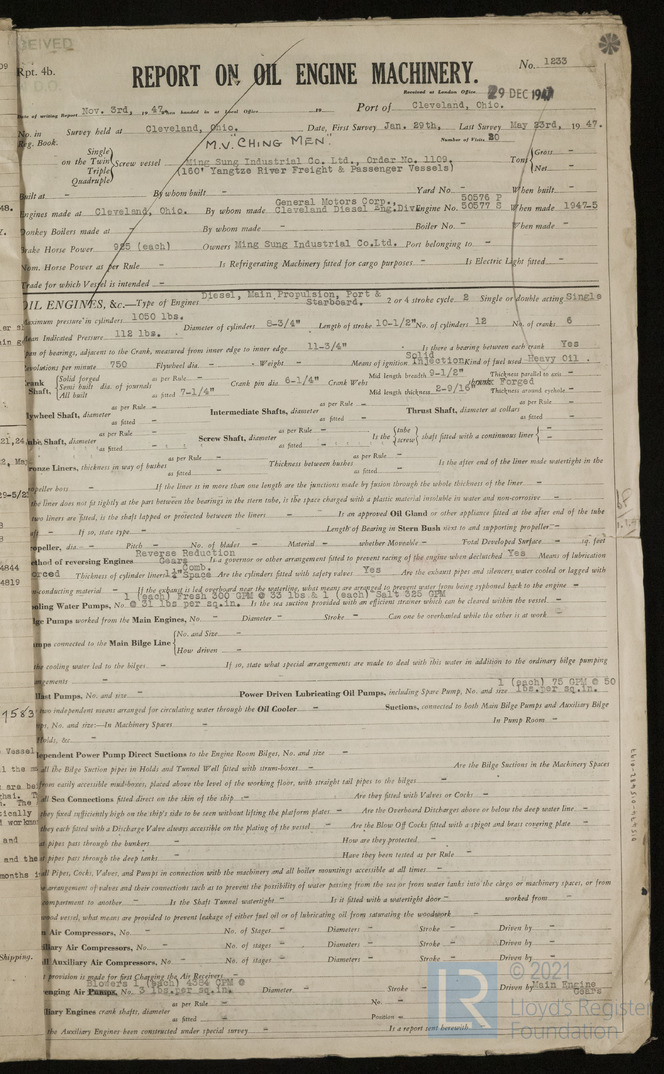 Rpt. 4b.
REPORT ON OIL ENGINE MACHINERY.
No. 1233
Received at London Office 29 DEC 1947
Date of writing Report Nov. 3rd, 1947. When handed in at Local Office 19 Port of Cleveland, Ohio.
No. in Survey held at Cleveland, Ohio. Date, First Survey Jan. 29th, Last Survey May 23rd, 1947.
Reg. Book. M.V. CHING MEN Number of Visits 20
Single
on the Twin Screw vessel Ming Sung Industrial Co. Ltd., Order No. 1109. Tons Gross -
Triple (160' Yangtze River Freight & Passenger Vessels) Net -
Quadruple
Built at - By whom built - Yard No. - When built -
Engines made at Cleveland, Ohio. By whom made General Motors Corp., Cleveland Diesel Eng. Div. Engine No. 50576 P 50577 S When made 1947-5
Donkey Boilers made at - By whom made - Boiler No. - When made -
Brake Horse Power 925 (each) Owners Ming Sung Industrial Co.Ltd. Port belonging to -
Nom. Horse Power as per Rule - Is Refrigerating Machinery fitted for cargo purposes - Is Electric Light fitted -
Trade for which Vessel is intended -
OIL ENGINES, &c. Type of Engines Diesel, Main Propulsion, Port & Starboard. 2 or 4 stroke cycle 2 Single or double acting Single
Maximum pressure in cylinders 1050 lbs. Diameter of cylinders 8-3/4" Length of stroke 10-1/2" No. of cylinders 12 No. of cranks 6
Mean Indicated Pressure 112 lbs.
Span of bearings, adjacent to the Crank, measured from inner edge to inner edge 11-3/4" Is there a bearing between each crank Yes
Revolutions per minute 750 Flywheel dia. - Weight - Means of ignition Solid Injection Kind of fuel used Heavy Oil.
Crank Shaft, Solid forged Semi built All built dia. of journals as per Rule - as fitted 7-1/4" Crank pin dia. 6-1/4" Crank Webs Mid length breadth 9-1/2" Mid length thickness 2-9/16" Forged Thickness parallel to axis - Thickness around eyehole -
Flywheel Shaft, diameter as per Rule - as fitted - Intermediate Shafts, diameter as per Rule - as fitted - Thrust Shaft, diameter at collars as per Rule - as fitted -
Tube Shaft, diameter as per Rule - as fitted - Screw Shaft, diameter as per Rule - as fitted - Is the tube screw shaft fitted with a continuous liner -
Bronze Liners, thickness in way of bushes as per Rule - as fitted - Thickness between bushes as per Rule - as fitted - Is the after end of the liner made watertight in the
propeller boss - If the liner is in more than one length are the junctions made by fusion through the whole thickness of the liner -
the liner does not fit tightly at the part between the bearings in the stern tube, is the space charged with a plastic material insoluble in water and non-corrosive -
two liners are fitted, is the shaft lapped or protected between the liners - Is an approved Oil Gland or other appliance fitted at the after end of the tube
If so, state type - Length of Bearing in Stern Bush next to and supporting propeller -
Propeller, dia. - Pitch - No. of blades - Material - whether Moveable - Total Developed Surface - sq. feet
Method of reversing Engines Reverse Reduction Gears Is a governor or other arrangement fitted to prevent racing of the engine when declutched Yes Means of lubrication
forced Thickness of cylinder liners Comb. Space Are the cylinders fitted with safety valves Yes Are the exhaust pipes and silencers water cooled or lagged with
non-conducting material - If the exhaust is led overboard near the waterline, what means are arranged to prevent water from being syphoned back to the engine -
Cooling Water Pumps, No. 1 (each) Fresh 300 GPM @ 33 lbs & 1 (each) Salt 325 GPM @ 31 lbs per sq.in. Is the sea suction provided with an efficient strainer which can be cleared within the vessel -
Bilge Pumps worked from the Main Engines, No. - Diameter - Stroke - Can one be overhauled while the other is at work -
Pumps connected to the Main Bilge Line No. and Size - How driven -
the cooling water led to the bilges - If so, state what special arrangements are made to deal with this water in addition to the ordinary bilge pumping
arrangements -
Ballast Pumps, No. and size - Power Driven Lubricating Oil Pumps, including Spare Pump, No. and size 1 (each) 75 GPM @ 50 lbs.per sq.in.
two independent means arranged for circulating water through the Oil Cooler - Suctions, connected to both Main Bilge Pumps and Auxiliary Bilge
Pumps, No. and size:—In Machinery Spaces - In Pump Room -
Holds, &c. -
Independent Power Pump Direct Suctions to the Engine Room Bilges, No. and size -
all the Bilge Suction pipes in Holds and Tunnel Well fitted with strum-boxes - Are the Bilge Suctions in the Machinery Spaces
from easily accessible mud-boxes, placed above the level of the working floor, with straight tail pipes to the bilges -
all Sea Connections fitted direct on the skin of the ship - Are they fitted with Valves or Cocks -
they fixed sufficiently high on the ship's side to be seen without lifting the platform plates - Are the Overboard Discharges above or below the deep water line -
they each fitted with a Discharge Valve always accessible on the plating of the vessel - Are the Blow Off Cocks fitted with a spigot and brass covering plate -
at pipes pass through the bunkers - How are they protected -
at pipes pass through the deep tanks - Have they been tested as per Rule -
all Pipes, Cocks, Valves, and Pumps in connection with the machinery and all boiler mountings accessible at all times -
the arrangement of valves and their connections such as to prevent the possibility of water passing from the sea or from water tanks into the cargo or machinery spaces, or from
compartment to another - Is the Shaft Tunnel watertight - Is it fitted with a watertight door - worked from -
wood vessel, what means are provided to prevent leakage of either fuel oil or of lubricating oil from saturating the woodwork -
Air Compressors, No. - No. of Stages - Diameters - Stroke - Driven by -
Auxiliary Air Compressors, No. - No. of stages - Diameters - Stroke - Driven by -
Small Auxiliary Air Compressors, No. - No. of stages - Diameters - Stroke - Driven by -
provision is made for first Charging the Air Receivers -
Scavenging Air Pumps, No. Blowers 1 (each) 4384 CFM @ 3 lbs.per sq.in. Diameter - Stroke - Driven by Main Engine Gears
Auxiliary Engines crank shafts, diameter as per Rule - as fitted - No. - Position -
the Auxiliary Engines been constructed under special survey - Is a report sent herewith -
LR © 2021
Lloyd's Register
Foundation